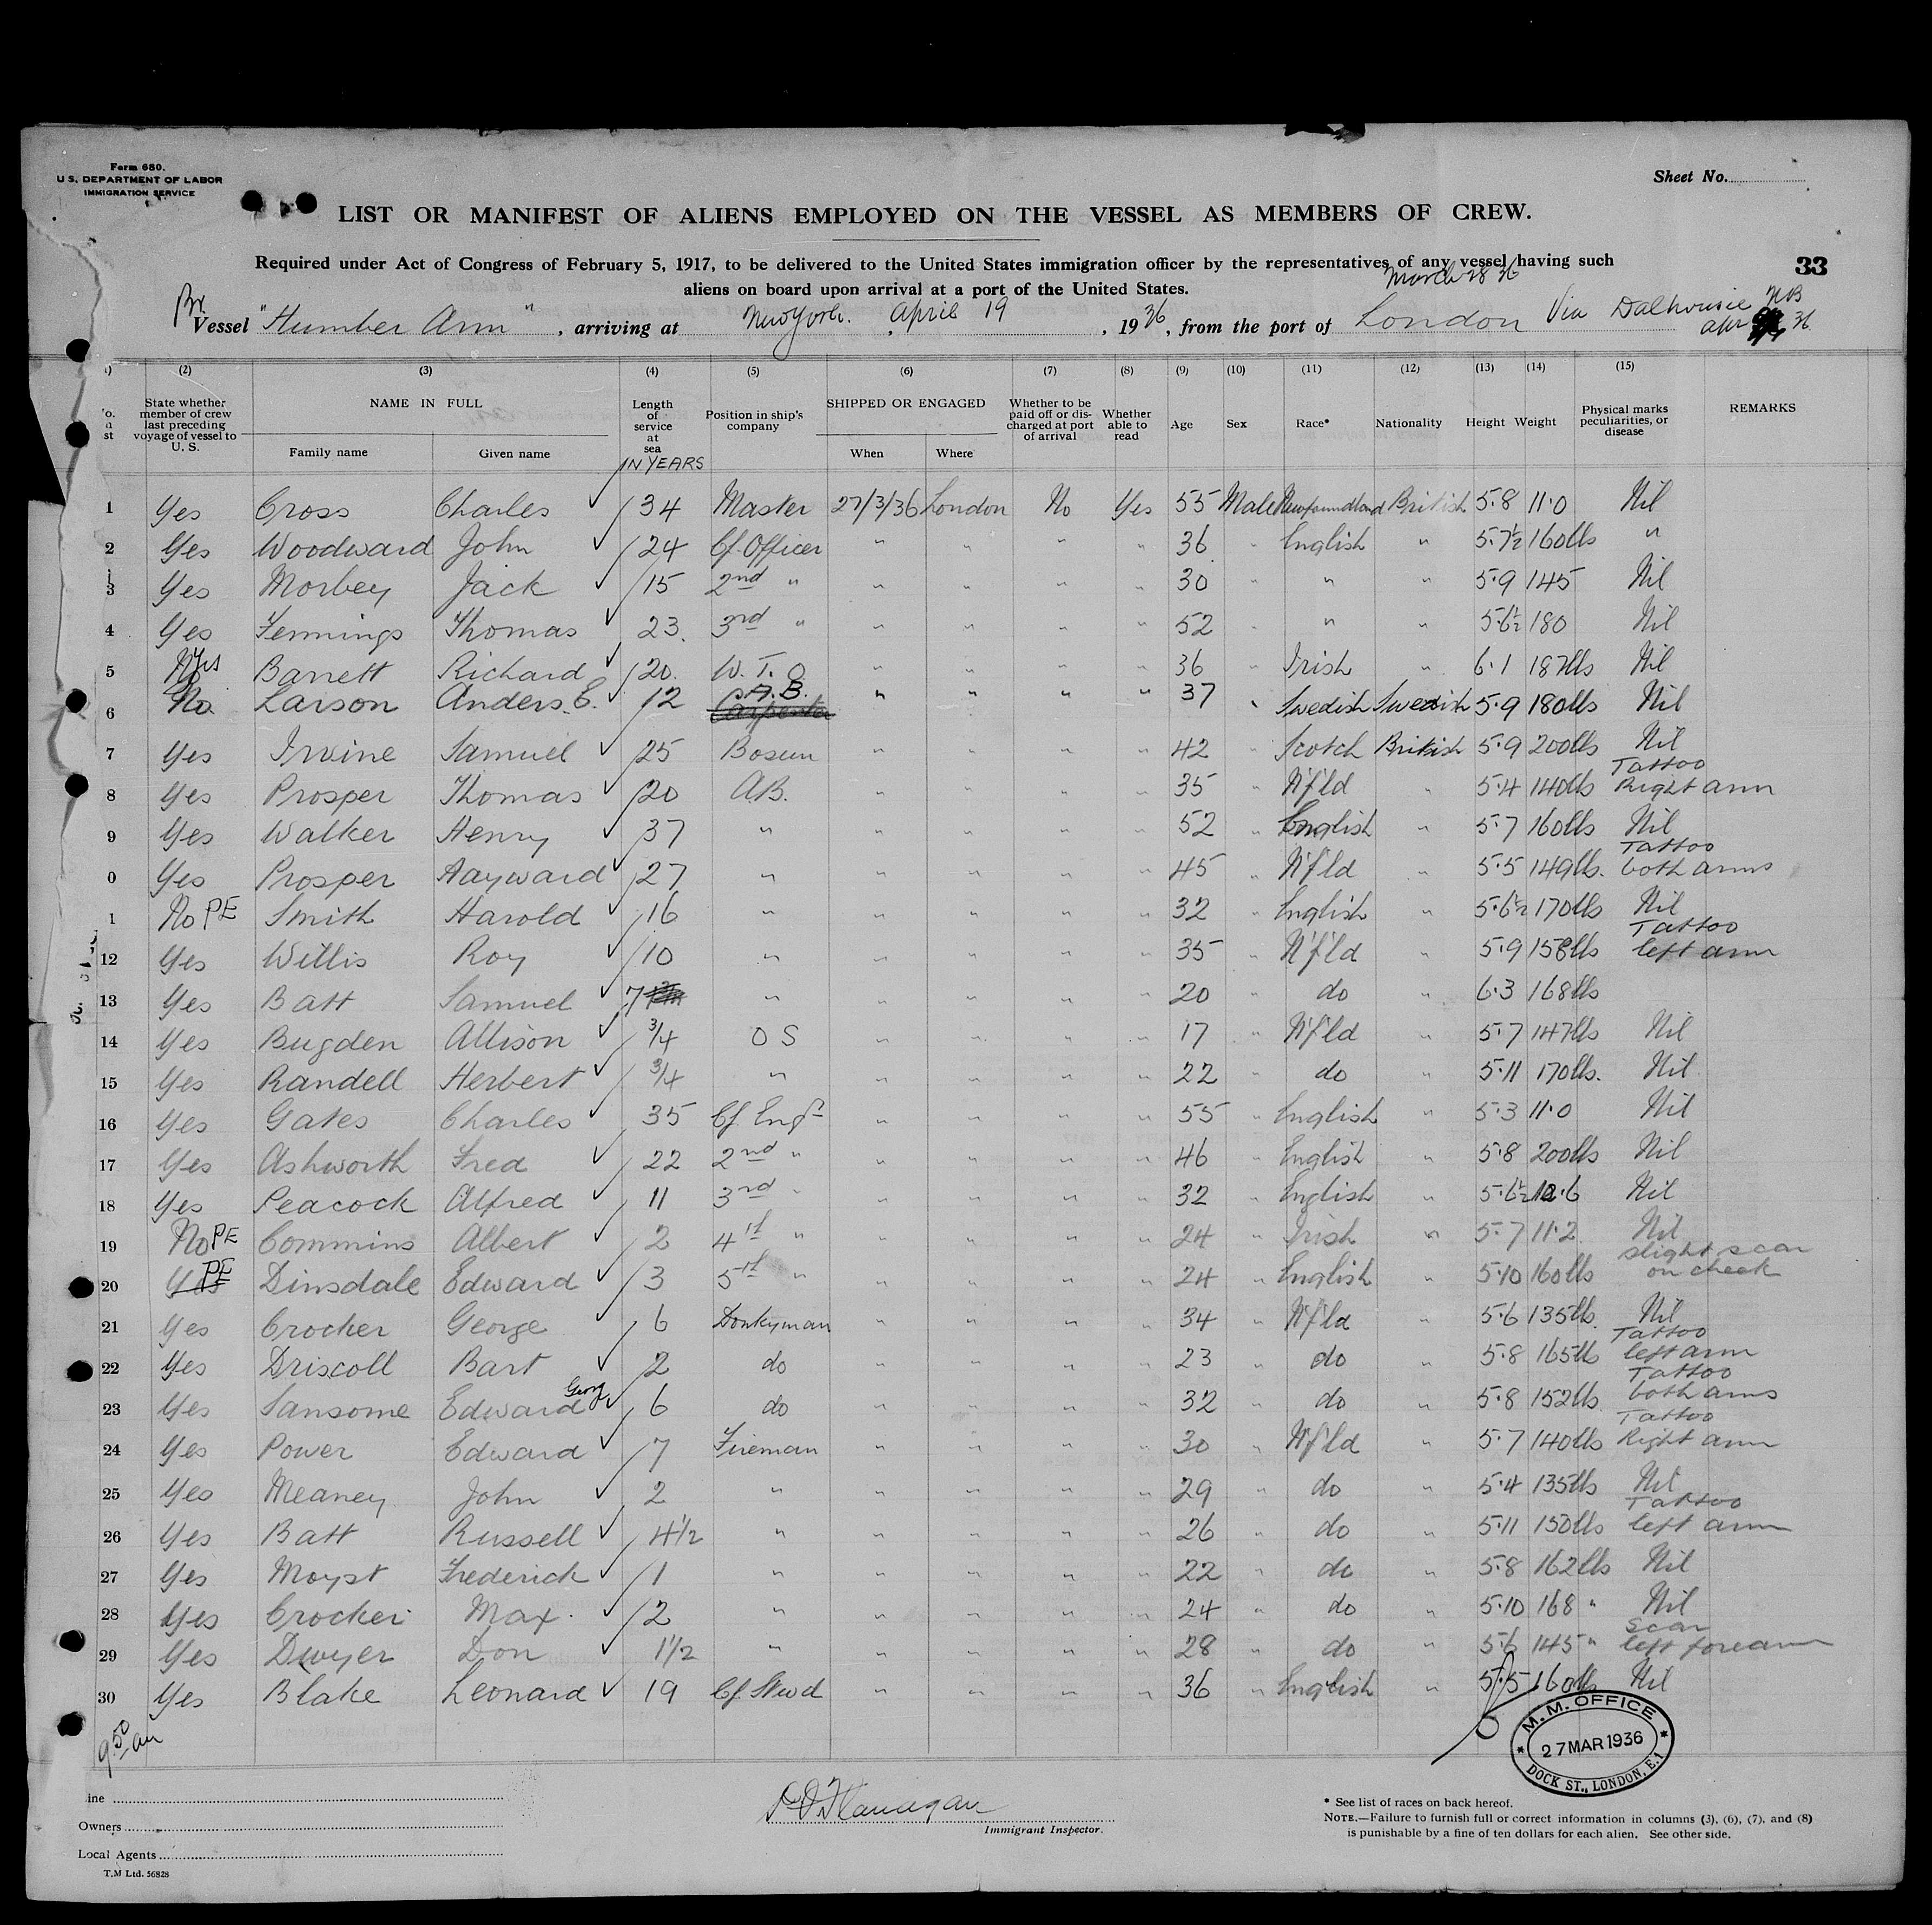 Form 680.
U. S. DEPARTMENT OF LABOR
IMMIGRATION SERVICE
Sheet No.
LIST OR MANIFEST OF ALIENS EMPLOYED ON THE VESSEL AS MEMBERS OF CREW.
Required under Act of Congress of February 5, 1917, to be delivered to the United States immigration officer by the representatives of any vessel having such
33
aliens on board upon arrival at a port of the United States.
March 28 36
Br. Vessel "Humber Arm" , arriving at New York. , April 19 , 1936 , from the port of London Via Dalhousie NB
apr 36
(2) (3) (4) (5) (6) (7) (8) (9) (10) (11) (12) (13) (14) (15)
State whether member of crew last preceding voyage of vessel to U. S. NAME IN FULL Family name Given name Length of service at sea IN YEARS Position in ship's company SHIPPED OR ENGAGED When Where Whether to be paid off or discharged at port of arrival Whether able to read Age Sex Race* Nationality Height Weight Physical marks peculiarities, or disease REMARKS
1 Yes Cross Charles ✓ 34 Master 27/3/36 London No Yes 55 Male Newfoundland British 5.8 11.0 Nil
2 Yes Woodward John ✓ 24 Cf. Officer " " " " 36 " English " 5.7½ 160lbs "
3 Yes Morbey Jack ✓ 15 2nd " " " " " 30 " " " 5.9 145 Nil
4 Yes Jennings Thomas ✓ 23. 3rd " " " " " 52 " " " 5.6½ 180 Nil
5 No Yes Barrett Richard ✓ 20. W.T.O " " " " 36 " Irish " 6.1 187lbs Nil
6 No Larson Anders. E. ✓ 12 A.B. Carpenter " " " " 37 " Swedish Swedish 5.9 180lbs Nil
7 Yes Irvine Samuel ✓ 25 Bosun " " " " 42 " Scotch British 5.9 200lbs Nil
8 Yes Prosper Thomas ✓ 20 A.B. " " " " 35 " N'f'ld " 5.4 140lbs Tattoo Right arm
9 Yes Walker Henry ✓ 37 " " " " " 52 " English " 5.7 160lbs Nil
0 Yes Prosper Hayward ✓ 27 " " " " " 45 " N'f'ld " 5.5 149lbs. Tattoo both arms
1 No PE Smith Harold ✓ 16 " " " " " 32 " English " 5.6½ 170lbs Nil
12 Yes Willis Roy ✓ 10 " " " " " 35 " N'f'ld " 5.9 158lbs Tattoo left arm
13 Yes Batt Samuel ✓ 7 " " " " " 20 " do " 6.3 168lbs
14 Yes Bugden Allison ✓ 3/4 O S " " " " 17 " N'f'ld " 5.7 147lbs Nil
15 Yes Randell Herbert ✓ 3/4 " " " " " 22 " do " 5.11 170lbs. Nil
16 Yes Gates Charles ✓ 35 Cf. Engr " " " " 55 " English " 5.3 11.0 Nil
17 Yes Ashworth Fred ✓ 22 2nd " " " " " 46 " English " 5.8 200lbs Nil
18 Yes Peacock Alfred ✓ 11 3rd " " " " " 32 " English " 5.6½ 12.6 Nil
19 No PE Commins Albert ✓ 2 4th " " " " " 24 " Irish " 5.7 11.2 Nil
20 Yes PE Dinsdale Edward ✓ 3 5th " " " " " 24 " English " 5.10 160lbs slight scar on cheek
21 Yes Crocker George ✓ 6 Donkyman " " " " 34 " N'f'ld " 5.6 135lbs. Nil
22 Yes Driscoll Bart ✓ 2 do " " " " 23 " do " 5.8 165lbs Tattoo left arm
23 Yes Sansome Edward Georg ✓ 6 do " " " " 32 " do " 5.8 152lbs Tattoo both arms
24 Yes Power Edward ✓ 7 Fireman " " " " 30 " N'f'ld " 5.7 140lbs Tattoo Right arm
25 Yes Meaney John ✓ 2 " " " " " 29 " do " 5.4 135lbs Nil
26 Yes Batt Russell ✓ 4½ " " " " " 26 " do " 5.11 150lbs Tattoo left arm
27 Yes Moyst Frederick ✓ 1 " " " " " 22 " do " 5.8 162lbs Nil
28 Yes Crocker Max. ✓ 2 " " " " " 24 " do " 5.10 168 " Nil
29 Yes Dwyer Don ✓ 1½ " " " " " 28 " do " 5.6 145 " Scar left forearm
30 Yes Blake Leonard ✓ 19 Cf. Stewd " " " " 36 " English " 5.5 160lbs Nil
9.50 am
M.M. OFFICE
27 MAR 1936
DOCK ST., LONDON, E.1
ine
Flanagan
Immigrant Inspector.
* See list of races on back hereof.
Owners
NOTE.—Failure to furnish full or correct information in columns (3), (6), (7), and (8)
is punishable by a fine of ten dollars for each alien. See other side.
Local Agents
T.M Ltd. 56828